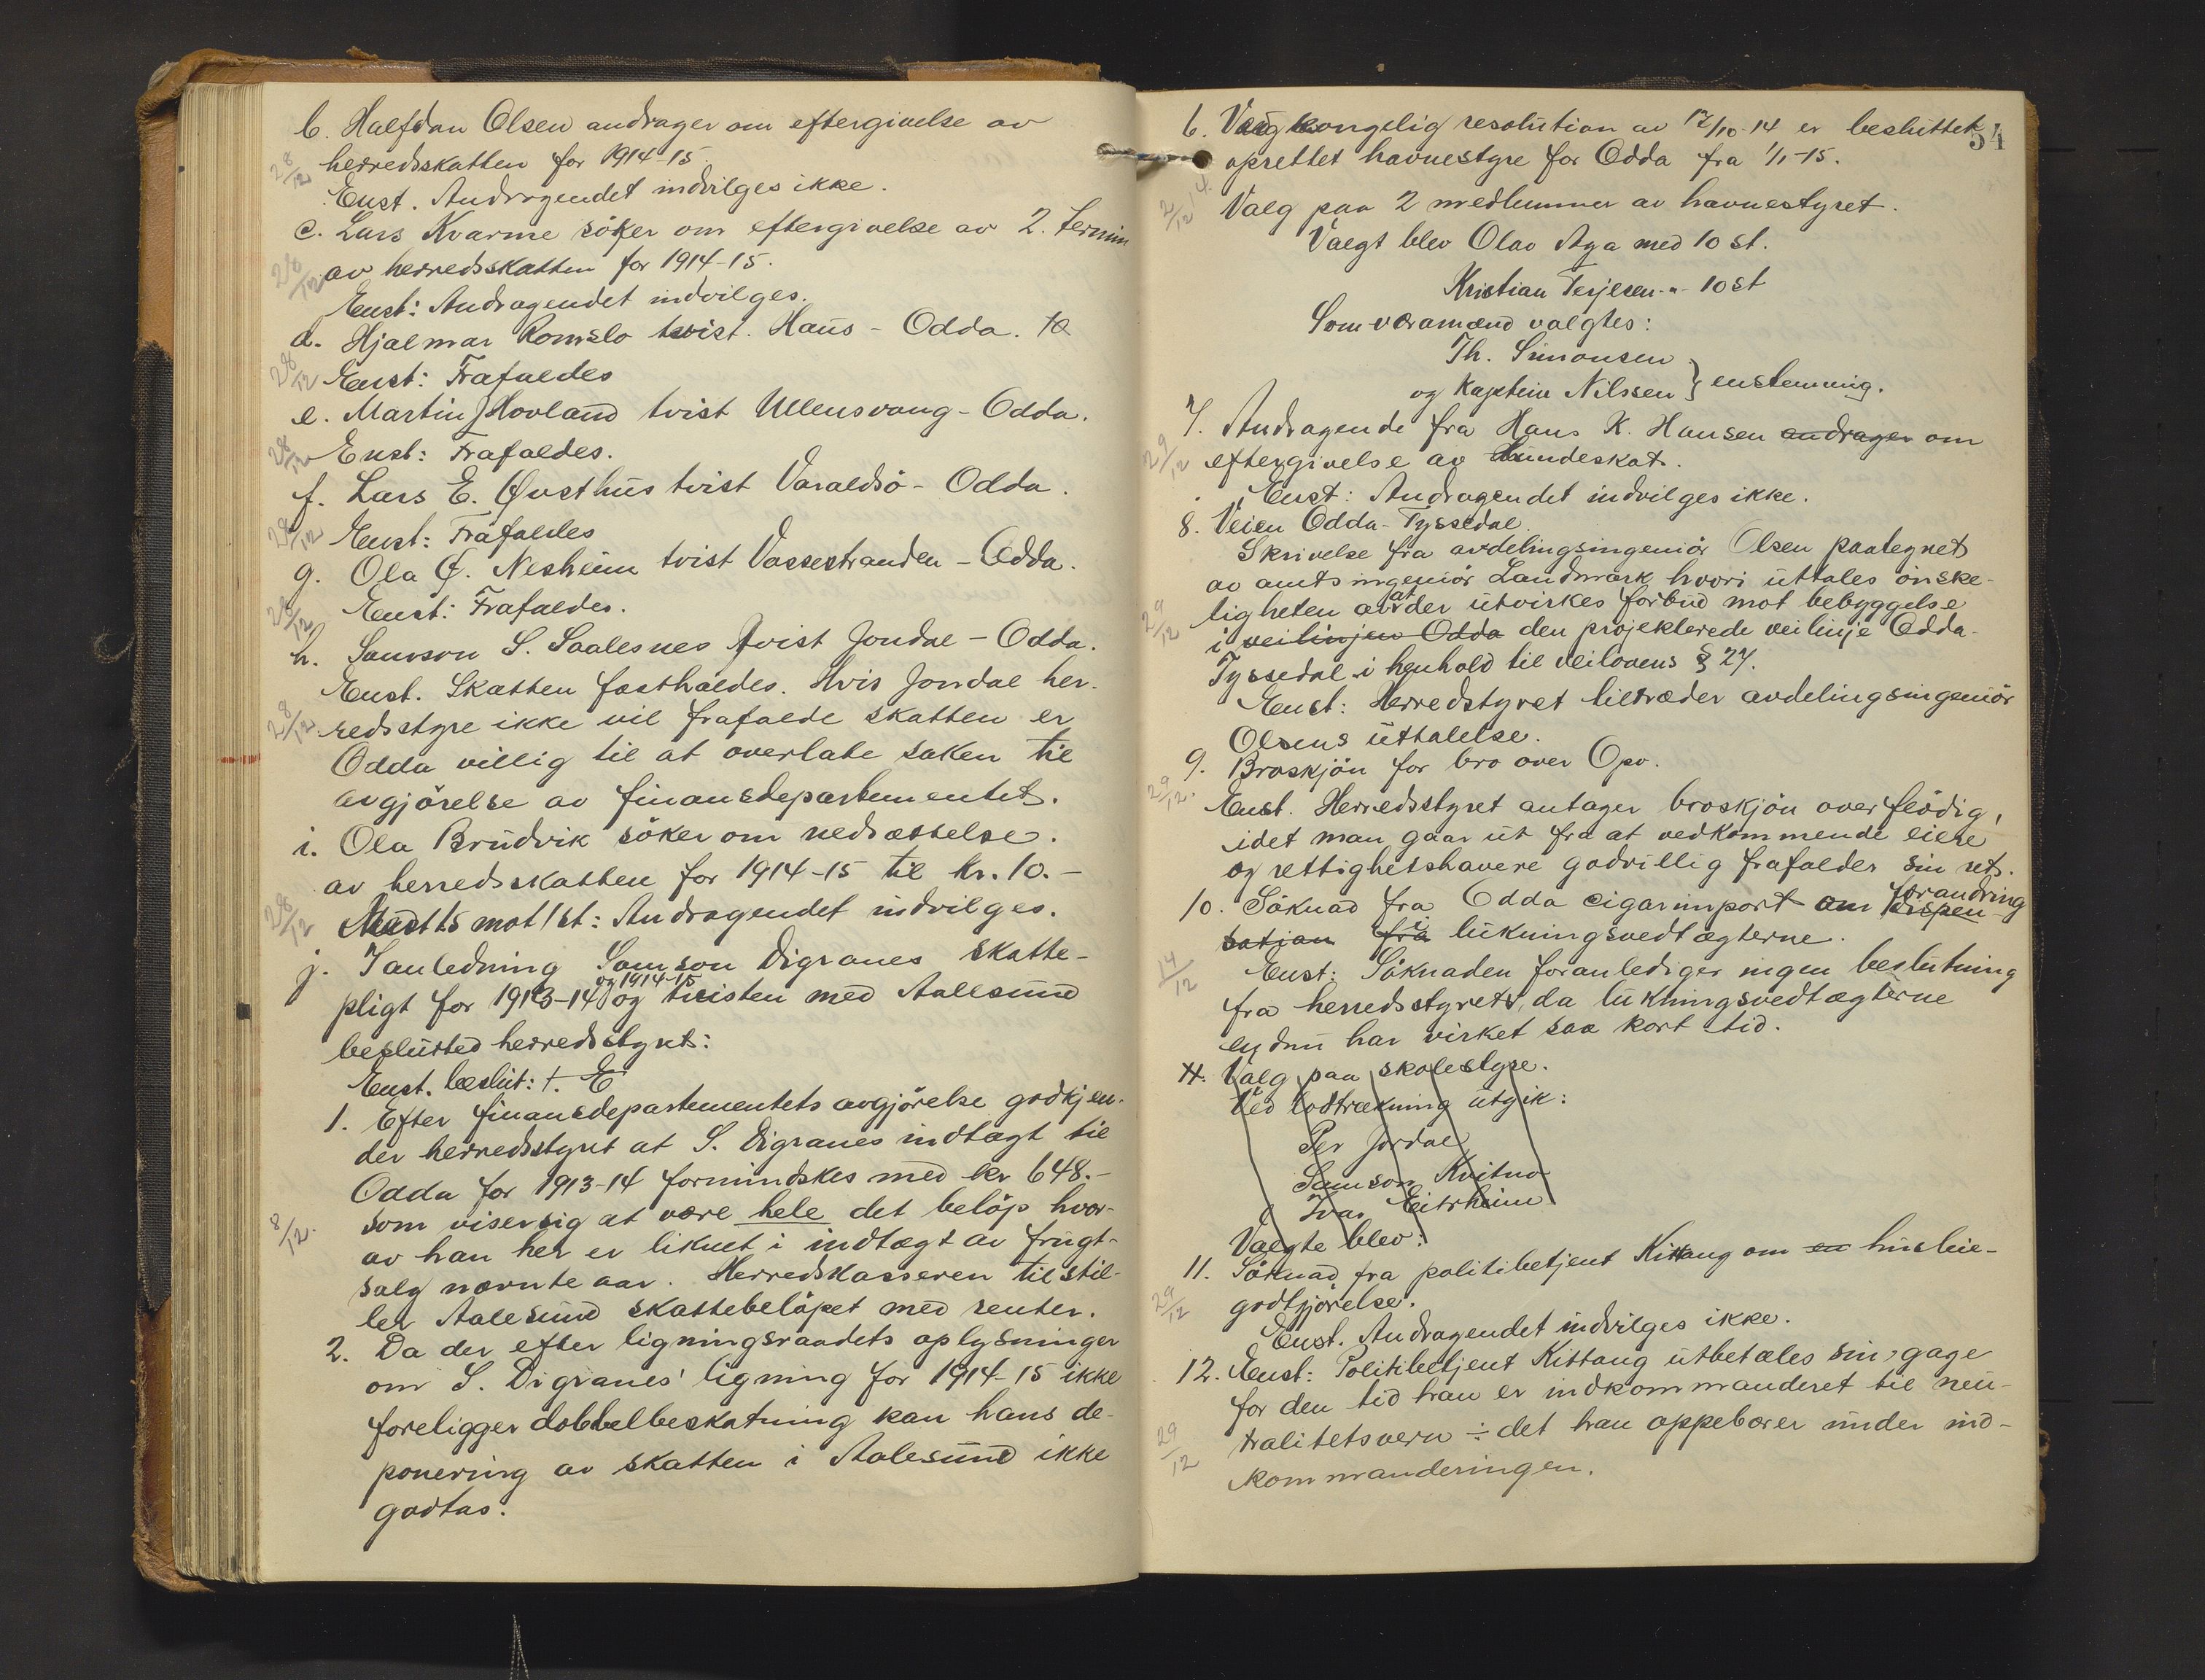 b. Halfdan Olsen andrager om eftergivelse av
28/12 herredsskatten for 1914-15.
Enst. Andragendet indvilges ikke.
c. Lars Kvarme söker om eftergivelse av 2. termin
28/12 av herredsskatten for 1914-15.
Enst: Andragendet indvilges.
d. Hjalmar Romslo tvist. Haus - Odda.
28/12 Enst: Frafaldes
e. Martin Hovland tvist Ullensvang - Odda.
28/12 Enst: Frafaldes.
f. Lars E. Øvsthus tvist Varaldsö - Odda.
28/12 Enst: Frafaldes
g. Ola Ø. Nesheim tvist Vossestranden - Odda.
28/12 Enst: Frafaldes.
h. Samson S. Saalesnes tvist Jondal - Odda.
Enst. Skatten fastholdes. Hvis Jondal her-
28/12 redsstyre ikke vil frafalde skatten er
Odda villig til at overlate saken til
avgjörelse av finansdepartementet.
i. Ola Brudvik söker om nedsættelse.
av herredsskatten for 1914-15 til kr. 10.-
28/12 Mot 1 st: Andragendet indvilges.
j. I anledning Samson Digranes skatte-
og 1914-15
pligt for 1913-14 og tvisten med Aallesund
beslutted herredsstyret:
Enst. beslut:
1. Efter finansdepartementets avgjörelse godkjen-
der herredsstyret at S. Digranes indtægt til
Odda for 1913-14 formindskes med kr 648.-
8/12. som viser sig at være hele det belöp hvor-
av han her er liknet i indtægt av frugt-
salg nævnte aar. Herredskasseren tilstil-
ler Aalesund skattebelöpet med renter.
2. Da der efter ligningsraadets oplysninger
om S. Digranes' ligning for 1914-15 ikke
foreligger dobbelbeskatning kan hans de-
ponering av skatten i Aalesund ikke
godtas.
54
6. Ved kongelig resolution av 17/10-14 er besluttet
oprettet havnestyre for Odda fra 1/1-15.
2/12 14. Valg paa 2 medlemmer av havnestyret.
Valgt blev Olav Aga med 10 st.
Kristian Terjesen -"- 10 st
Som varamænd valgtes:
Th. Simonsen
og Kaptein Nilssen } enstemmig.
7. Andragende fra Hans K. Hansen andrager om
29/12 eftergivelse av hundeskat.
Enst: Andragendet indvilges ikke.
8. Veien Odda-Tyssedal.
Skrivelse fra avdelingsingeniör Olsen paategnet
av amtsingeniör Landmark hvori uttales önske-
at
29/12 ligheten av der utvirkes forbud mot bebyggelse
i veilinjen Odda den projekterede veilinje Odda-
Tyssedal i henhold til veilovens § 27.
Enst: Herredstyret tiltræder avdelingsingeniör
Olsens uttalelse.
9. Broskjön for bro over Opo.
29/12. Enst. Herredsstyret antager broskjön overflödig,
idet man gaar ut fra at vedkommende eiere
og rettighetshavere godvillig frafalder sin ret.
forandring
10. Söknad fra Odda cigarimport om dispen-
i
sation fra lukningsvedtægterne.
14/12 Enst: Söknaden foranlediger ingen beslutning
fra herredsstyret, da lukningsvedtægterne
endnu har virket saa kort tid.
11. Valg paa skolestyre.
Ved lodtrækning utgik:
Per Jordal
Samson Kvitno
Ivar Eitrheim
Valgte blev:
11. Söknad fra politibetjent Kittang om en husleie-
29/12 godtgjörelse.
Enst. Andragendet indvilges ikke.
12. Enst: Politibetjent Kittang utbetales sin gage
for den tid han er indkommanderet til neu-
29/12 tralitetsvern ÷ det han oppebærer under ind-
kommanderingen.